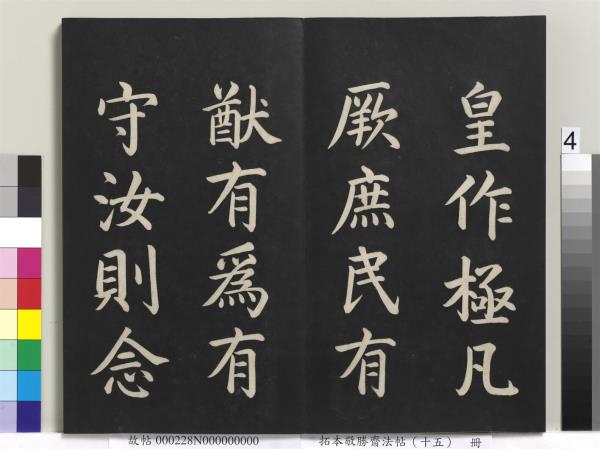 皇作極凡
厥庶民有
猷有為有
守汝則念
4
故帖 000228N000000000
拓本敬勝齋法帖（十五） 冊